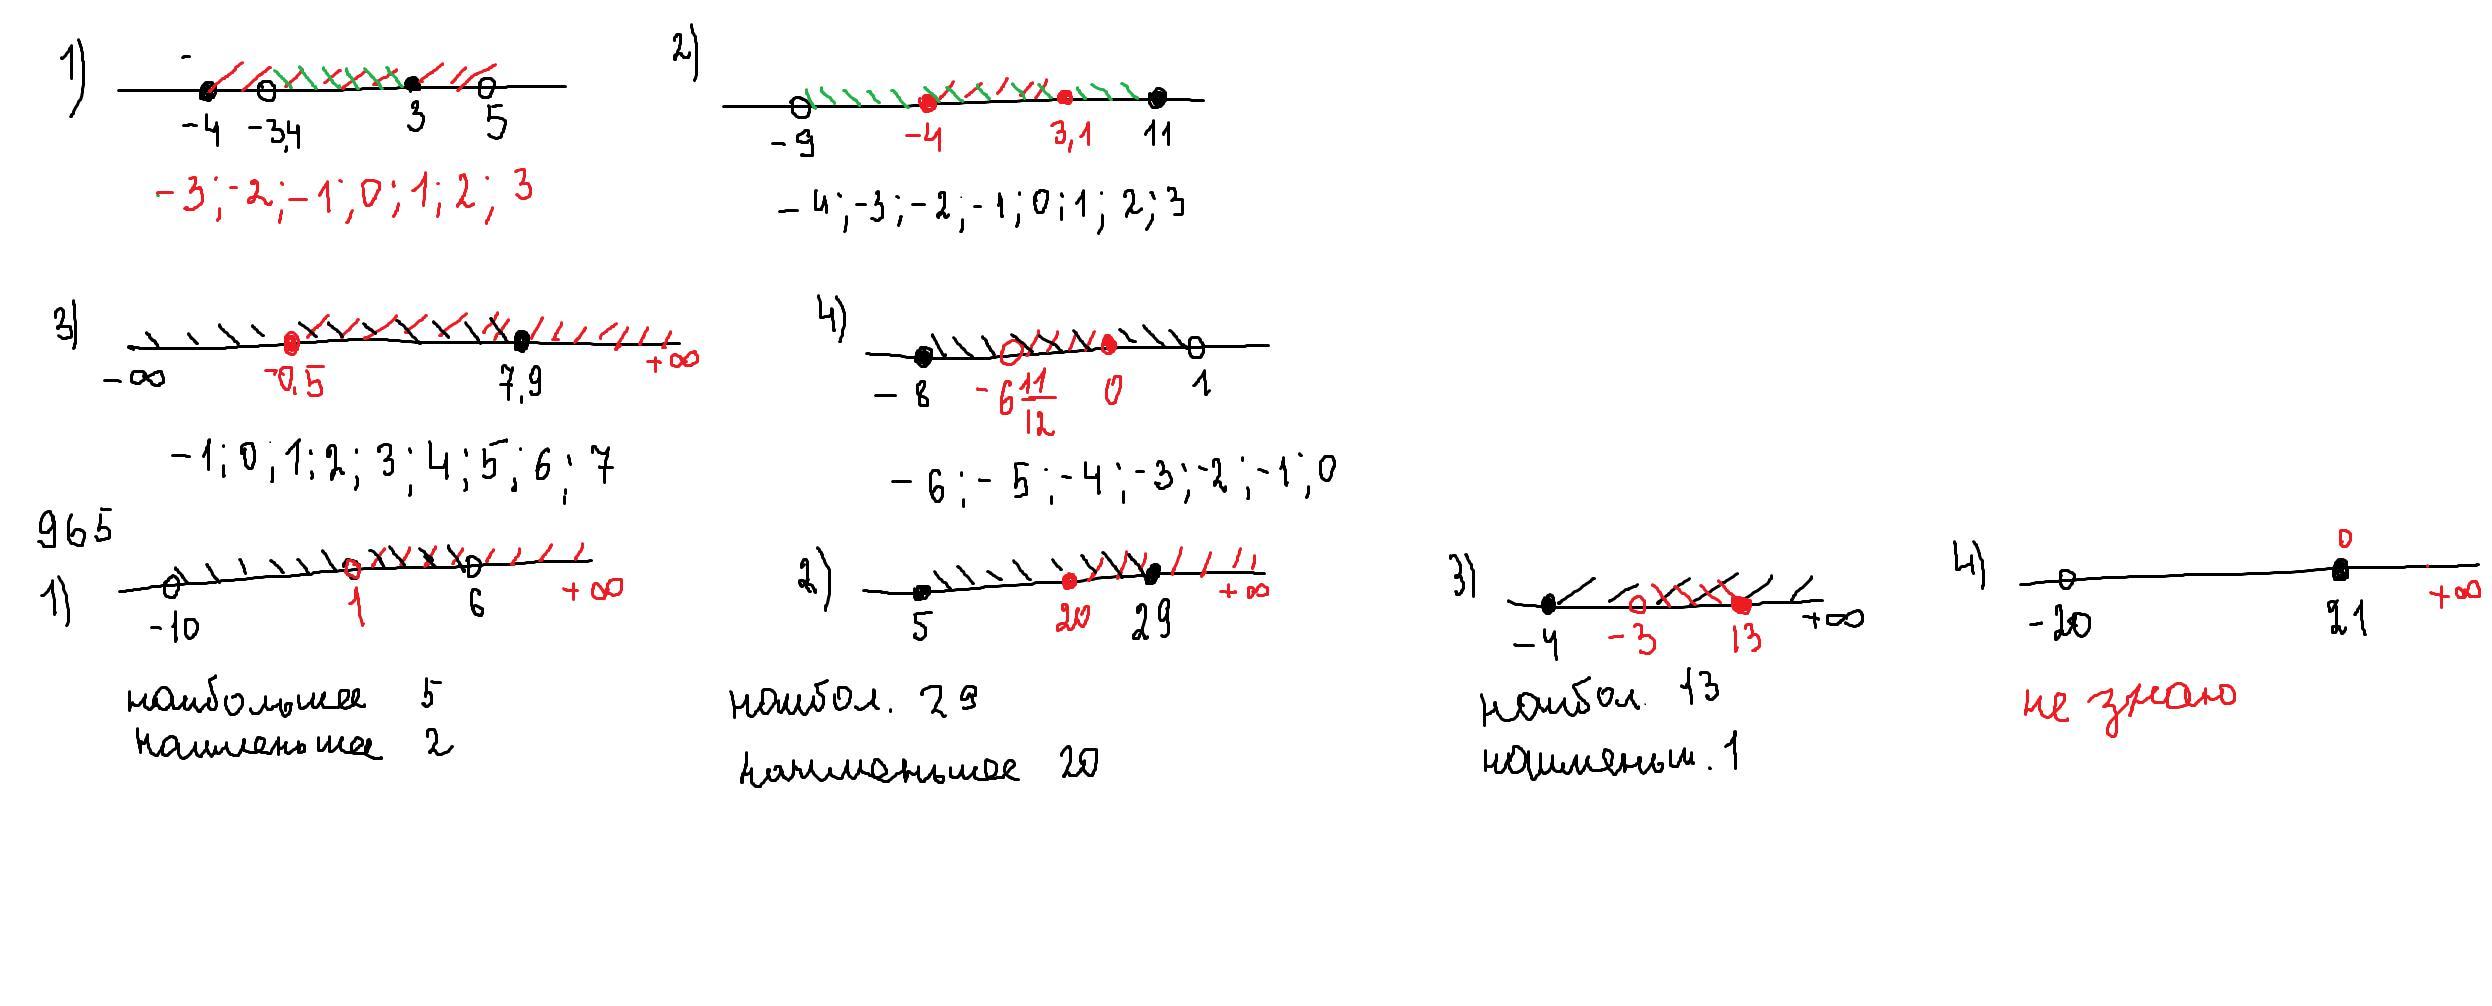 1)
-
-4 -3,4 3 5
-3; -2; -1; 0; 1; 2; 3
2)
-9 -4 3,1 11
-4; -3; -2; -1; 0; 1; 2; 3
3)
-∞ -0,5 7,9 +∞
-1; 0; 1; 2; 3; 4; 5; 6; 7
4)
-8 -6 11/12 0 1
-6; -5; -4; -3; -2; -1; 0
965
1)
-10 1 6 +∞
наибольшее 5
наименьшее 2
2)
5 20 29 +∞
наибол. 29
наименьшее 20
3)
-4 -3 13 +∞
наибол. 13
наименьш. 1
4)
-20 21 +∞
не знаю